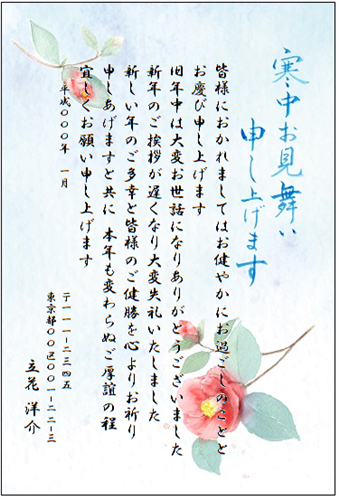 寒中お見舞い
申し上げます
皆様におかれましてはお健やかにお過ごしのことと
お慶び申し上げます
旧年中は大変お世話になりありがとうございました
新年のご挨拶が遅くなり大変失礼いたしました
新しい年のご多幸と皆様のご健勝を心よりお祈り
申しあげますと共に 本年も変わらぬご厚誼の程
宜しくお願い申し上げます
平成〇〇〇年 一月
〒一一一-二三四五
東京都〇〇区〇〇一-二二-三
立花 洋介